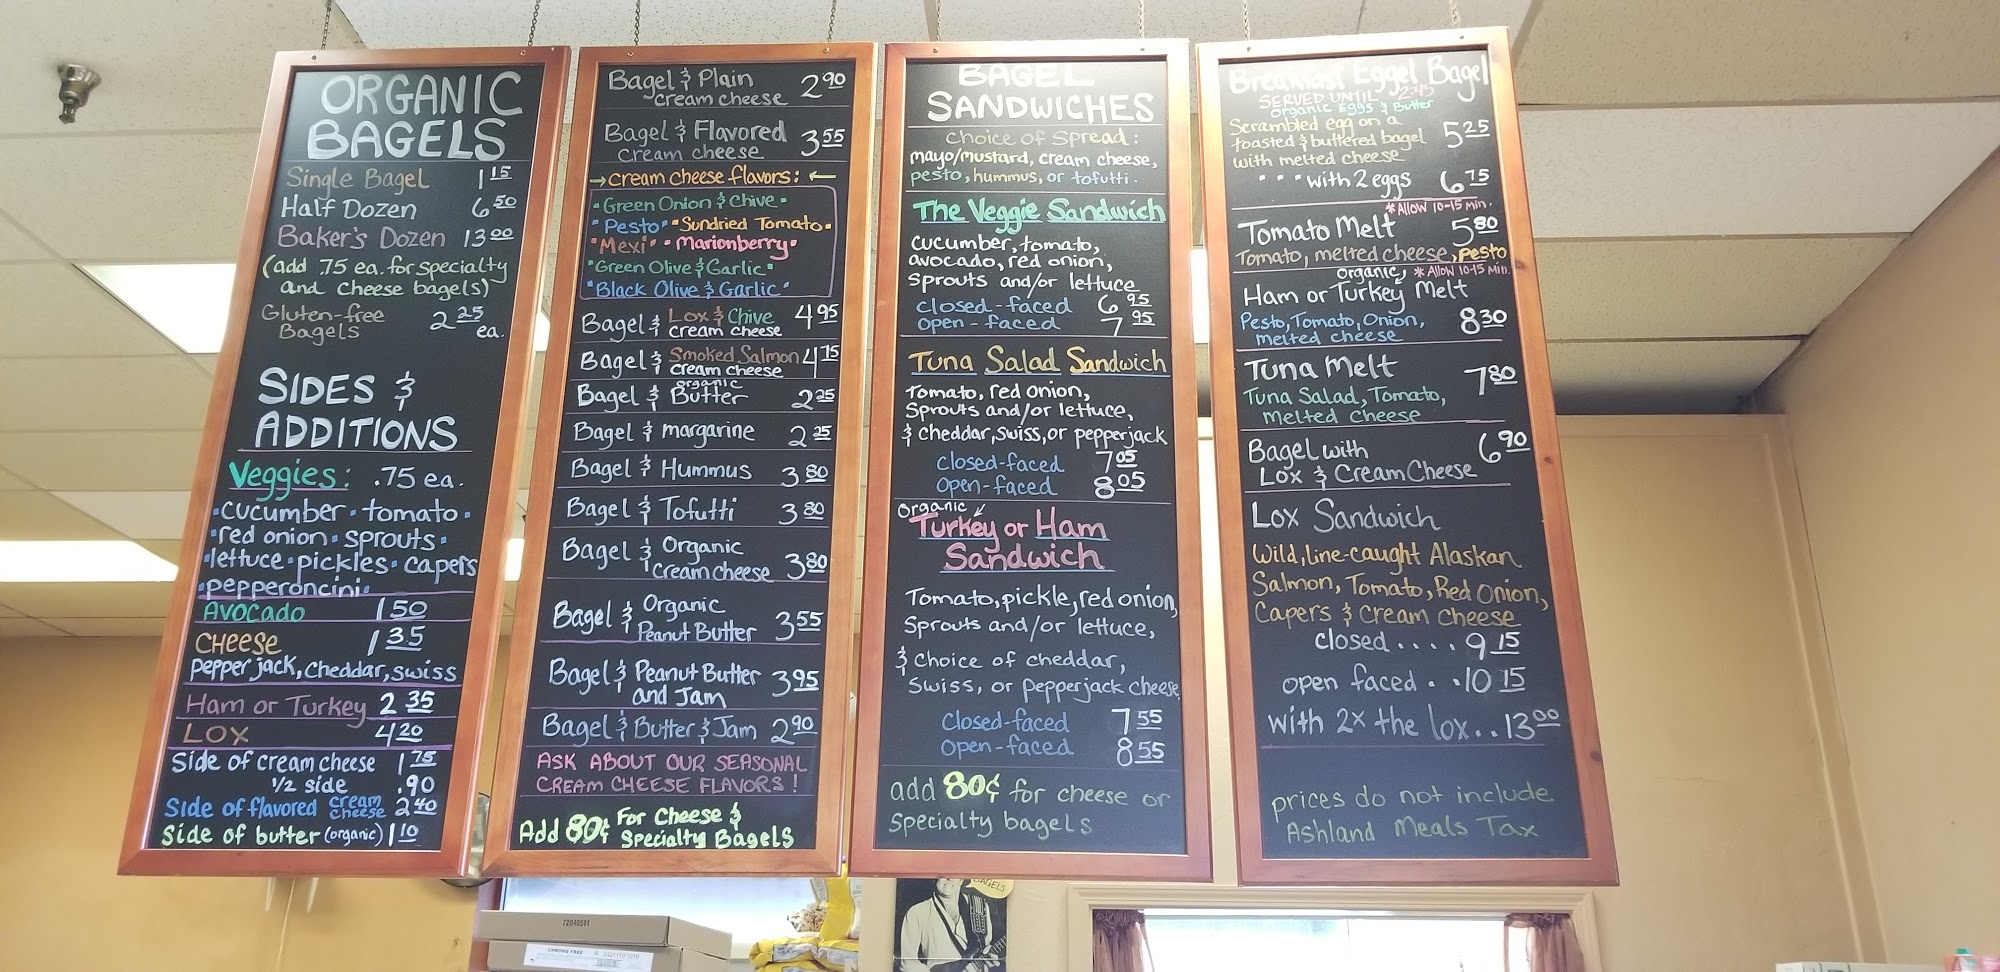 ORGANIC
BAGELS
Single Bagel 1 15
Half Dozen 6 50
Baker's Dozen 13 00
(add .75 ea. for specialty
and cheese bagels)
Gluten-free
Bagels 2 25 ea.
SIDES &
ADDITIONS
Veggies: .75 ea.
• cucumber • tomato •
• red onion • sprouts •
• lettuce • pickles • capers
• pepperoncini •
AVOCADO 1 50
CHEESE 1 35
pepper jack, cheddar, swiss
Ham or Turkey 2 35
LOX 4 20
Side of cream cheese 1 75
1/2 side .90
Side of flavored cream cheese 2 40
Side of butter (organic) 1 10
Bagel & Plain
cream cheese 2 90
Bagel & Flavored
cream cheese 3 55
→ cream cheese flavors: ←
• Green Onion & Chive •
• Pesto • • Sundried Tomato •
• Mexi • • Marionberry •
• Green Olive & Garlic •
• Black Olive & Garlic •
Bagel & Lox & Chive
cream cheese 4 95
Bagel & Smoked Salmon
cream cheese 4 75
Bagel & organic
Butter 2 25
Bagel & margarine 2 25
Bagel & Hummus 3 80
Bagel & Tofutti 3 80
Bagel & Organic
Cream cheese 3 80
Bagel & Organic
Peanut Butter 3 55
Bagel & Peanut Butter
and Jam 3 95
Bagel & Butter & Jam 2 90
ASK ABOUT OUR SEASONAL
CREAM CHEESE FLAVORS!
Add 80¢ For Cheese &
Specialty Bagels
BAGEL
SANDWICHES
Choice of Spread:
mayo/mustard, cream cheese,
pesto, hummus, or tofutti.
The Veggie Sandwich
cucumber, tomato,
avocado, red onion,
sprouts and/or lettuce
closed-faced 6 95
open-faced 7 95
Tuna Salad Sandwich
Tomato, red onion,
Sprouts and/or lettuce,
& cheddar, swiss, or pepperjack
closed-faced 7 05
open-faced 8 05
Organic
Turkey or Ham
Sandwich
Tomato, pickle, red onion,
Sprouts and/or lettuce,
& Choice of cheddar,
Swiss, or pepperjack cheese
Closed-faced 7 55
Open-faced 8 55
add 80¢ for cheese or
specialty bagels
Breakfast Eggel Bagel
SERVED UNTIL 2:45
organic Eggs & Butter
Scrambled egg on a
toasted & buttered bagel
with melted cheese 5 25
• • • with 2 eggs 6 75
* Allow 10-15 min.
Tomato Melt 5 80
Tomato, melted cheese, pesto
organic, * Allow 10-15 Min.
Ham or Turkey Melt
Pesto, Tomato, Onion,
melted cheese 8 30
Tuna Melt 7 80
Tuna Salad, Tomato,
melted cheese
Bagel with 6 90
Lox & Cream Cheese
Lox Sandwich
Wild, line-caught Alaskan
Salmon, Tomato, Red Onion,
Capers & Cream Cheese
closed . . . . 9 15
open faced . . 10 15
with 2x the lox . . 13 00
prices do not include
Ashland Meals Tax
72040591
CHROME FREE
BAGELS